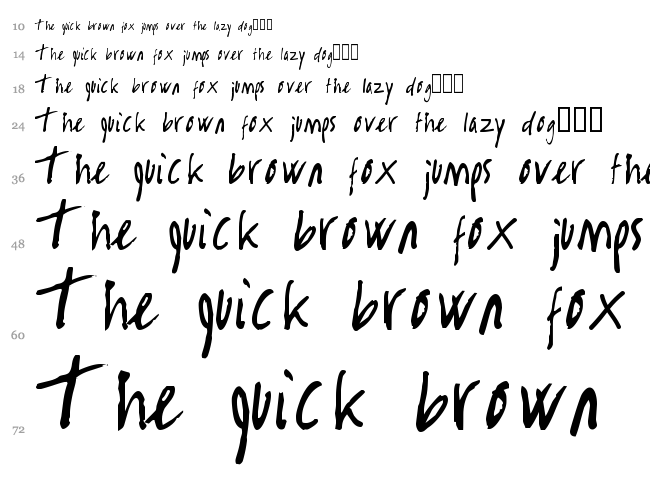 10 The quick brown fox jumps over the lazy dog□□□
14 The quick brown fox jumps over the lazy dog□□□
18 The quick brown fox jumps over the lazy dog□□□
24 The quick brown fox jumps over the lazy dog□□□
36 The quick brown fox jumps over the
48 The quick brown fox jumps
60 The quick brown fox
72 The quick brown